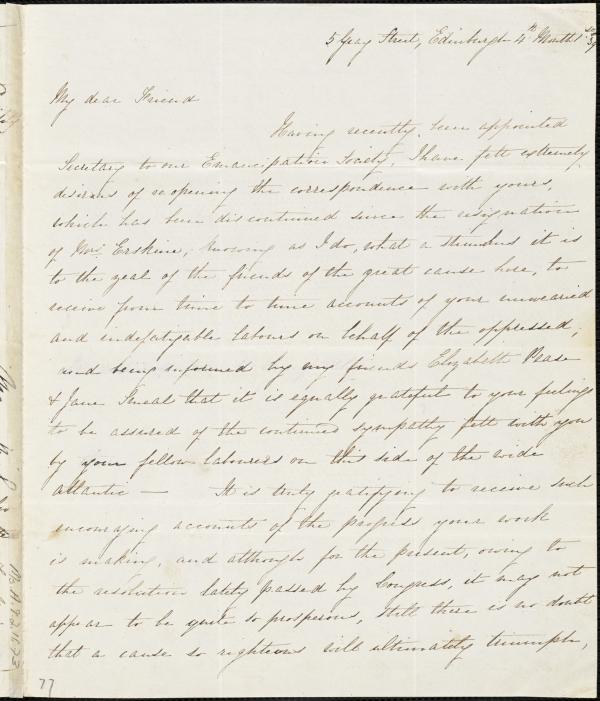 5 Gray Street, Edinburgh 4th Month 1st 39
My dear Friend
Having recently been appointed
Secretary to our Emancipation Society, I have felt extremely
desirous of reopening the correspondence with yours,
which has been discontinued since the resignation
of Mrs. Erskine, knowing as I do, what a stimulus it is
to the zeal of the friends of the great cause here, to
receive from time to time accounts of your unwearied
and indefatigable labours on behalf of the oppressed,
and being informed by my friends Elizabeth Pease
& Jane Smeal that it is equally grateful to your feelings
to be assured of the continued sympathy felt with you
by your fellow labourers on this side of the wide
atlantic — It is truly gratifying to receive such
encouraging accounts of the progress your work
is making, and although for the present, owing to
the resolution lately passed by Congress, it may not
appear to be quite so prosperous, still there is no doubt
that a cause so righteous will ultimately triumph,
77